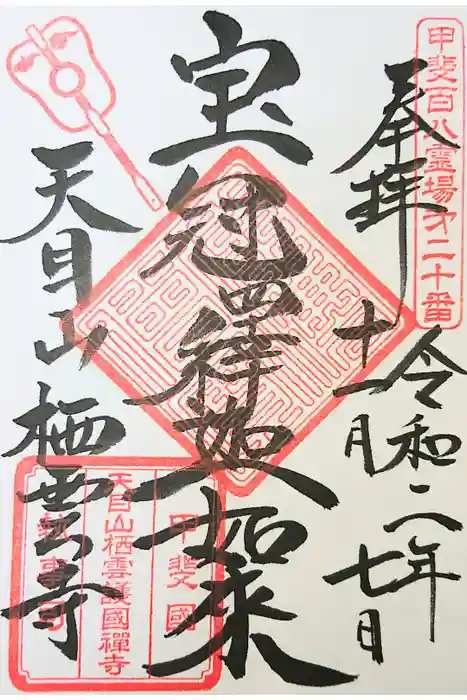 甲斐百八霊場才二十番
奉拝
令和二年
十一月
七日
宝冠釋迦如来
天目山
栖雲寺
甲斐國
天目山栖雲護國禪寺
執事